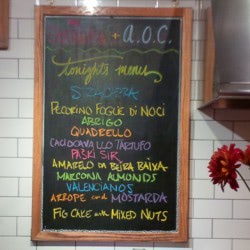 + a.o.c.
tonight's menu
PECORINO FOGLIE DI NOCI
ABRIGO
QUADRELLO
CACIOCAVALLO TARTUFO
PAŠKI SIR
AMARELO da BEIRA BAIXA
MARCONA ALMONDS
VALENCIANOS
ARROPE and MOSTARDA
FIG CAKE with MIXED NUTS